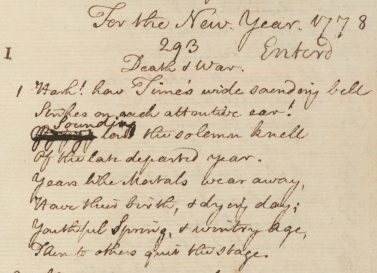 For the New Year. 1778
I 293 Enterd
Death & War.
1 Hark! how Time's wide sounding bell
Strikes on each attentive ear!
Sounding
loud the solemn knell
Of the late departed year.
Years like Mortals wear away,
Have their birth, & dying day;
Youthful Spring, & wintry age,
Then to others quit the stage.